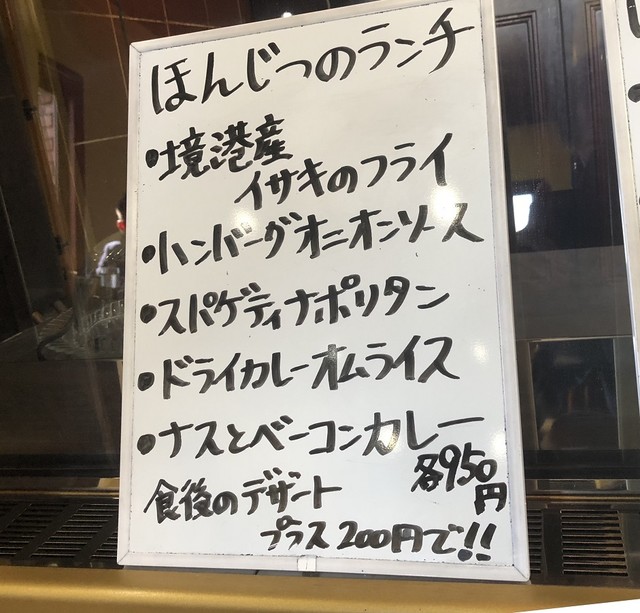 ほんじつのランチ
•境港産
イサキのフライ
•ハンバーグオニオンソース
•スパゲティナポリタン
•ドライカレーオムライス
•ナスとベーコンカレー
各950円
食後のデザート
プラス200円で!!